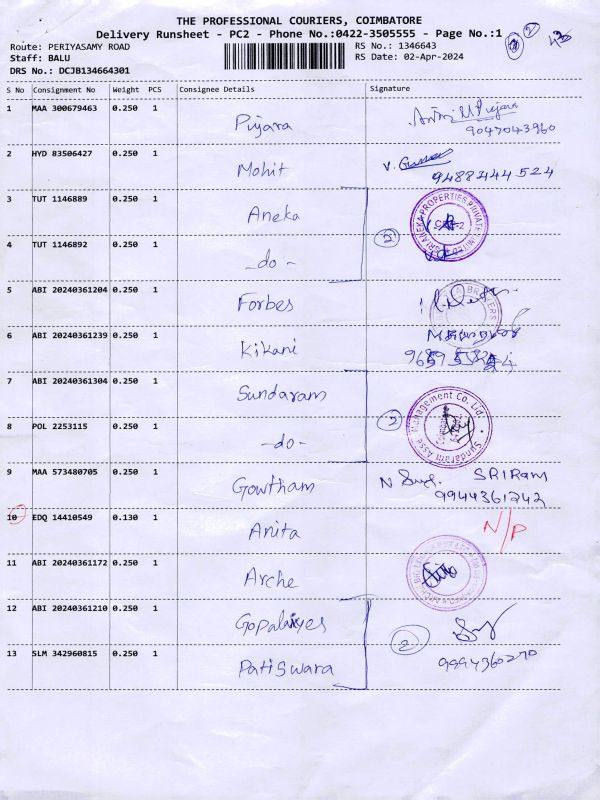 THE PROFESSIONAL COURIERS, COIMBATORE
Delivery Runsheet - PC2 - Phone No.:0422-3505555 - Page No.:1
Route: PERIYASAMY ROAD
Staff: BALU
DRS No.: DCJB134664301
RS No.: 1346643
RS Date: 02-Apr-2024
2
S No Consignment No Weight PCS Consignee Details Signature
1 MAA 300679463 0.250 1 Pujara
9047043960
2 HYD 83506427 0.250 1 Mohit
9488444524
3 TUT 1146889 0.250 1 Aneka
2
SRI ANEKA PROPERTIES PRIVATE LIMITED
4 TUT 1146892 0.250 1 -do-
5 ABI 20240361204 0.250 1 Forbes
6 ABI 20240361239 0.250 1 Kikani
7 ABI 20240361304 0.250 1 Sundaram
2
Sundaram Asset Management Co. Ltd.
8 POL 2253115 0.250 1 -do-
9 MAA 573480705 0.250 1 Gowtham SRIRam
9944361242
10 EDQ 14410549 0.130 1 Anita N/P
11 ABI 20240361172 0.250 1 Arche
12 ABI 20240361210 0.250 1 Gopalaiyes
2
13 SLM 342960815 0.250 1 Patiswara
9994360270